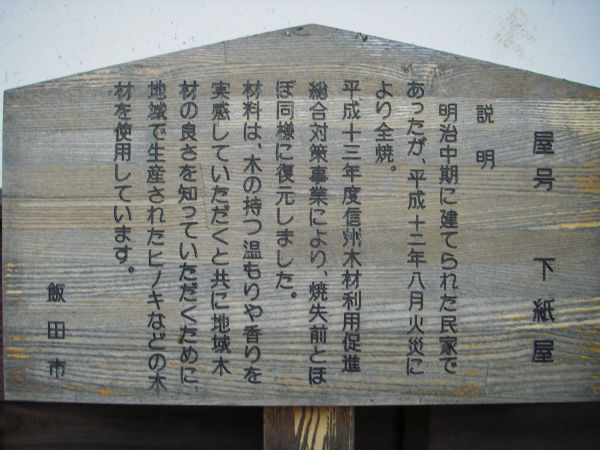 屋号　下紙屋
説明
明治中期に建てられた民家で
あったが、平成十二年八月火災に
より全焼。
平成十三年度信州木材利用促進
総合対策事業により、焼失前とほ
ぼ同様に復元しました。
材料は、木の持つ温もりや香りを
実感していただくと共に地域木
材の良さを知っていただくために、
地域で生産されたヒノキなどの木
材を使用しています。
飯田市